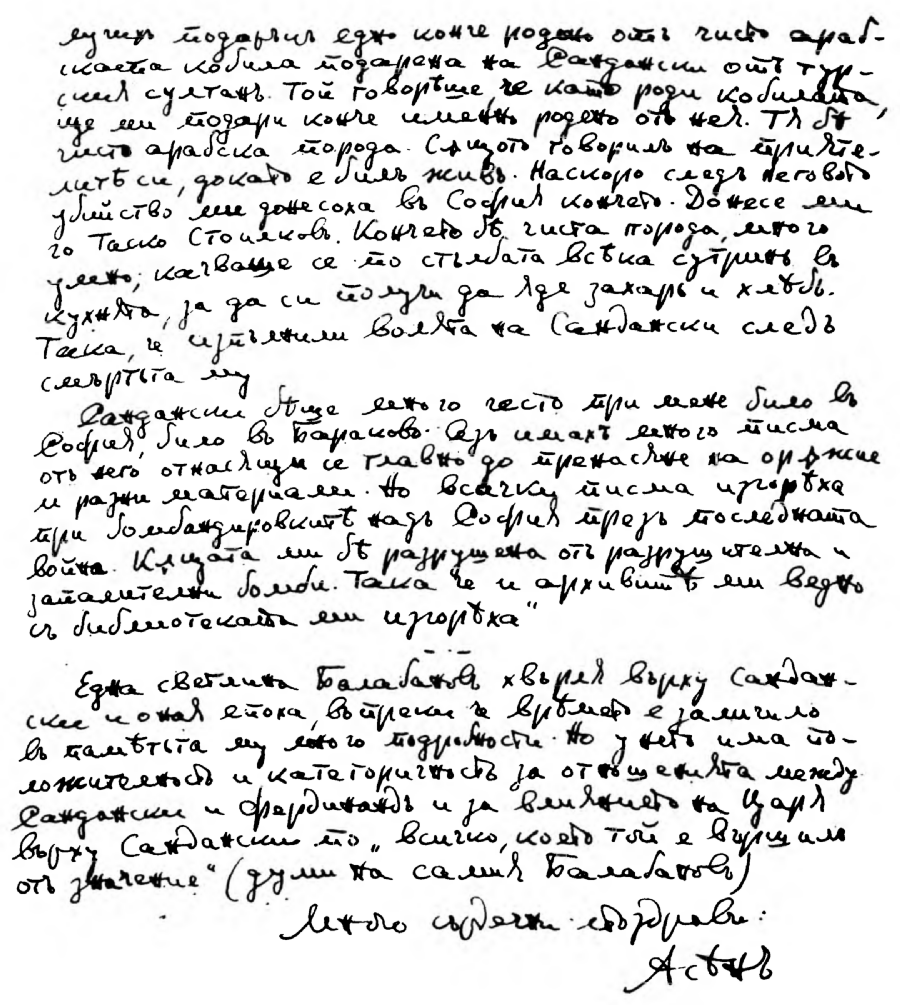 лучилъ подаръкъ едно конче родено отъ чисто араб-
ската кобила подарена на Сандански отъ тур-
ския султанъ. Той говорѣше, че като роди кобилата,
ще ми подари конче именно родено отъ нея. Тя бѣ
чисто арабска порода. Сѫщото говорилъ на прияте-
литѣ си, докато е билъ живъ. Наскоро следъ неговото
убийство ми донесоха въ София кончето. Донесе ми
го Таско Стоилковъ. Кончето бѣ чиста порода, много
умно, качваше се по стълбата всѣка сутринь въ
кухнята, за да си получи да яде захарь и хлѣбъ.
Така, че изпълнили волята на Сандански следъ
смъртьта му
Сандански бѣше много често при мене било въ
София, било въ Бараково. Азъ имахъ много писма
отъ него отнасящи се главно до пренасяне на орѫжие
и разни материали. Но всички писма изгорѣха
при бомбандировкитѣ надъ София презъ последната
война. Кѫщата ми бѣ разрушена отъ разрушителна и
запалителни бомби. Така че и архивитѣ ми ведно
съ библиотеката ми изгорѣха"
Една светлина Балабановъ хвърля върху Сандан-
ски и оная епоха, въпреки че врѣмето е заличило
въ паметьта му много подробности. Но у него има по-
ложителность и категоричность за отношенията между
Сандански и Фердинандъ и за влиянието на Царя
върху Сандански по „всичко, което той е вършилъ
отъ значение" (думи на самия Балабановъ)
Много сърдечни поздрави:
Асѣнъ